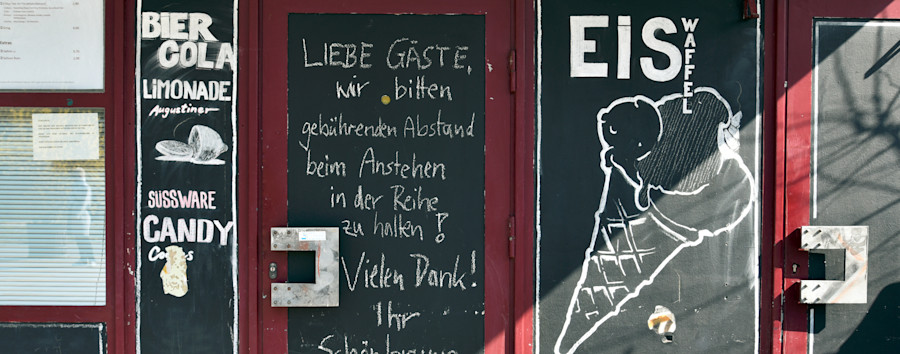 BIER
COLA
LIMONADE
Augustiner
SÜSSWARE
CANDY
LIEBE GÄSTE,
wir bitten
gebührenden Abstand
beim Anstehen
in der Reihe
zu halten!
Vielen Dank!
Ihr
EIS
WAFFEL